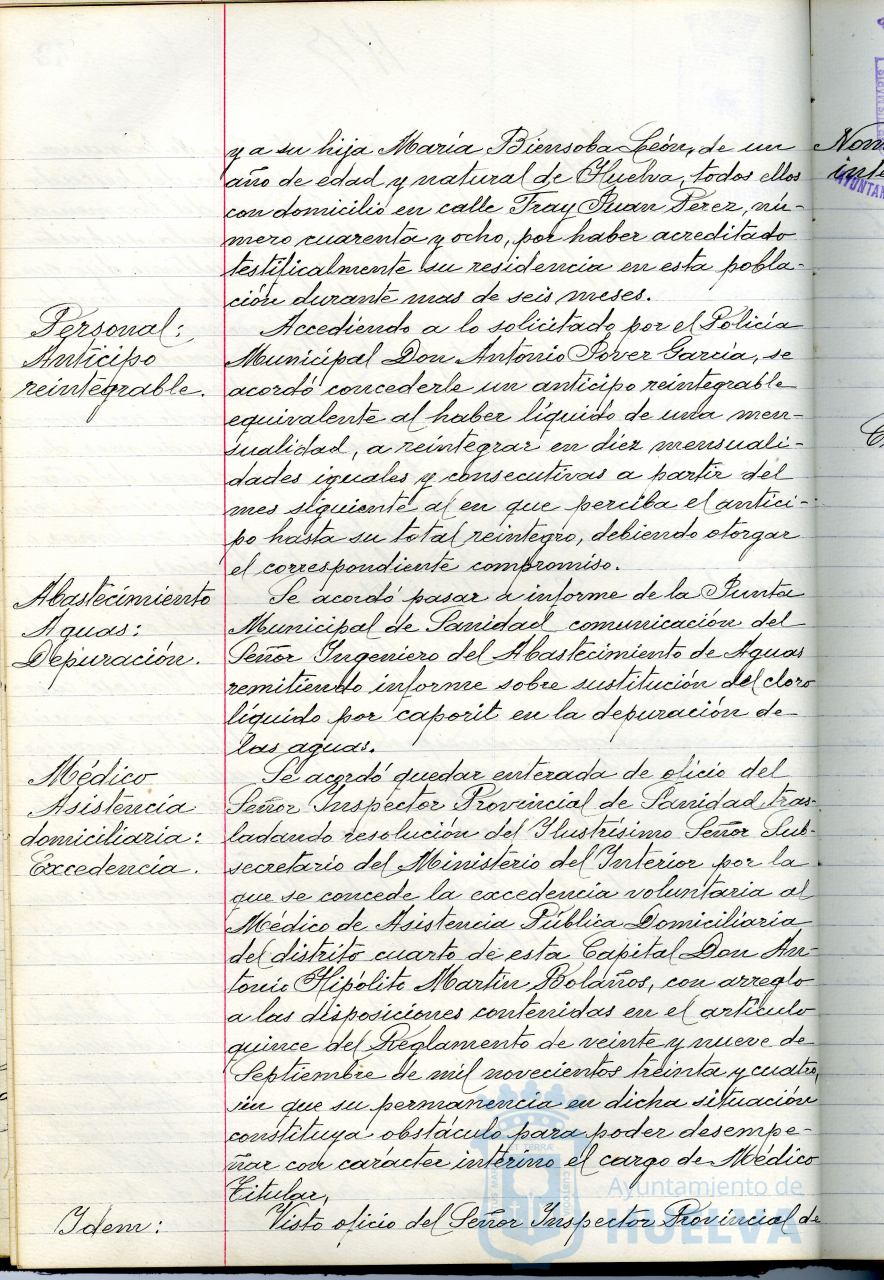 y a su hija María Biensoba León, de un
año de edad y natural de Huelva, todos ellos
con domicilio en calle Fray Juan Perez, nú-
mero cuarenta y ocho, por haber acreditado
testificalmente su residencia en esta pobla-
ción durante mas de seis meses.
Personal:
Anticipo
reintegrable.
Accediendo a lo solicitado por el Policía
Municipal Don Antonio Jover García, se
acordó concederle un anticipo reintegrable
equivalente al haber líquido de una men-
sualidad, a reintegrar en diez mensuali-
dades iguales y consecutivas a partir del
mes siguiente al en que perciba el antici-
po hasta su total reintegro, debiendo otorgar
el correspondiente compromiso.
Abastecimiento
Aguas:
Depuración.
Se acordó pasar a informe de la Junta
Municipal de Sanidad comunicación del
Señor Ingeniero del Abastecimiento de Aguas
remitiendo informe sobre sustitución del cloro
líquido por caporit en la depuración de
las aguas.
Médico
Asistencia
domiciliaria:
Excedencia.
Se acordó quedar enterada de oficio del
Señor Inspector Provincial de Sanidad tras-
ladando resolución del Ilustrísimo Señor Sub-
secretario del Ministerio del Interior por la
que se concede la excedencia voluntaria al
Médico de Asistencia Pública Domiciliaria
del distrito cuarto de esta Capital Don An-
tonio Hipólito Martín Bolaños, con arreglo
a las disposiciones contenidas en el artículo
quince del Reglamento de veinte y nueve de
Septiembre de mil novecientos treinta y cuatro,
sin que su permanencia en dicha situación
constituya obstáculo para poder desempe-
ñar con carácter interino el cargo de Médico
Titular,
Idem:
Visto oficio del Señor Inspector Provincial de
Ayuntamiento de
HUELVA